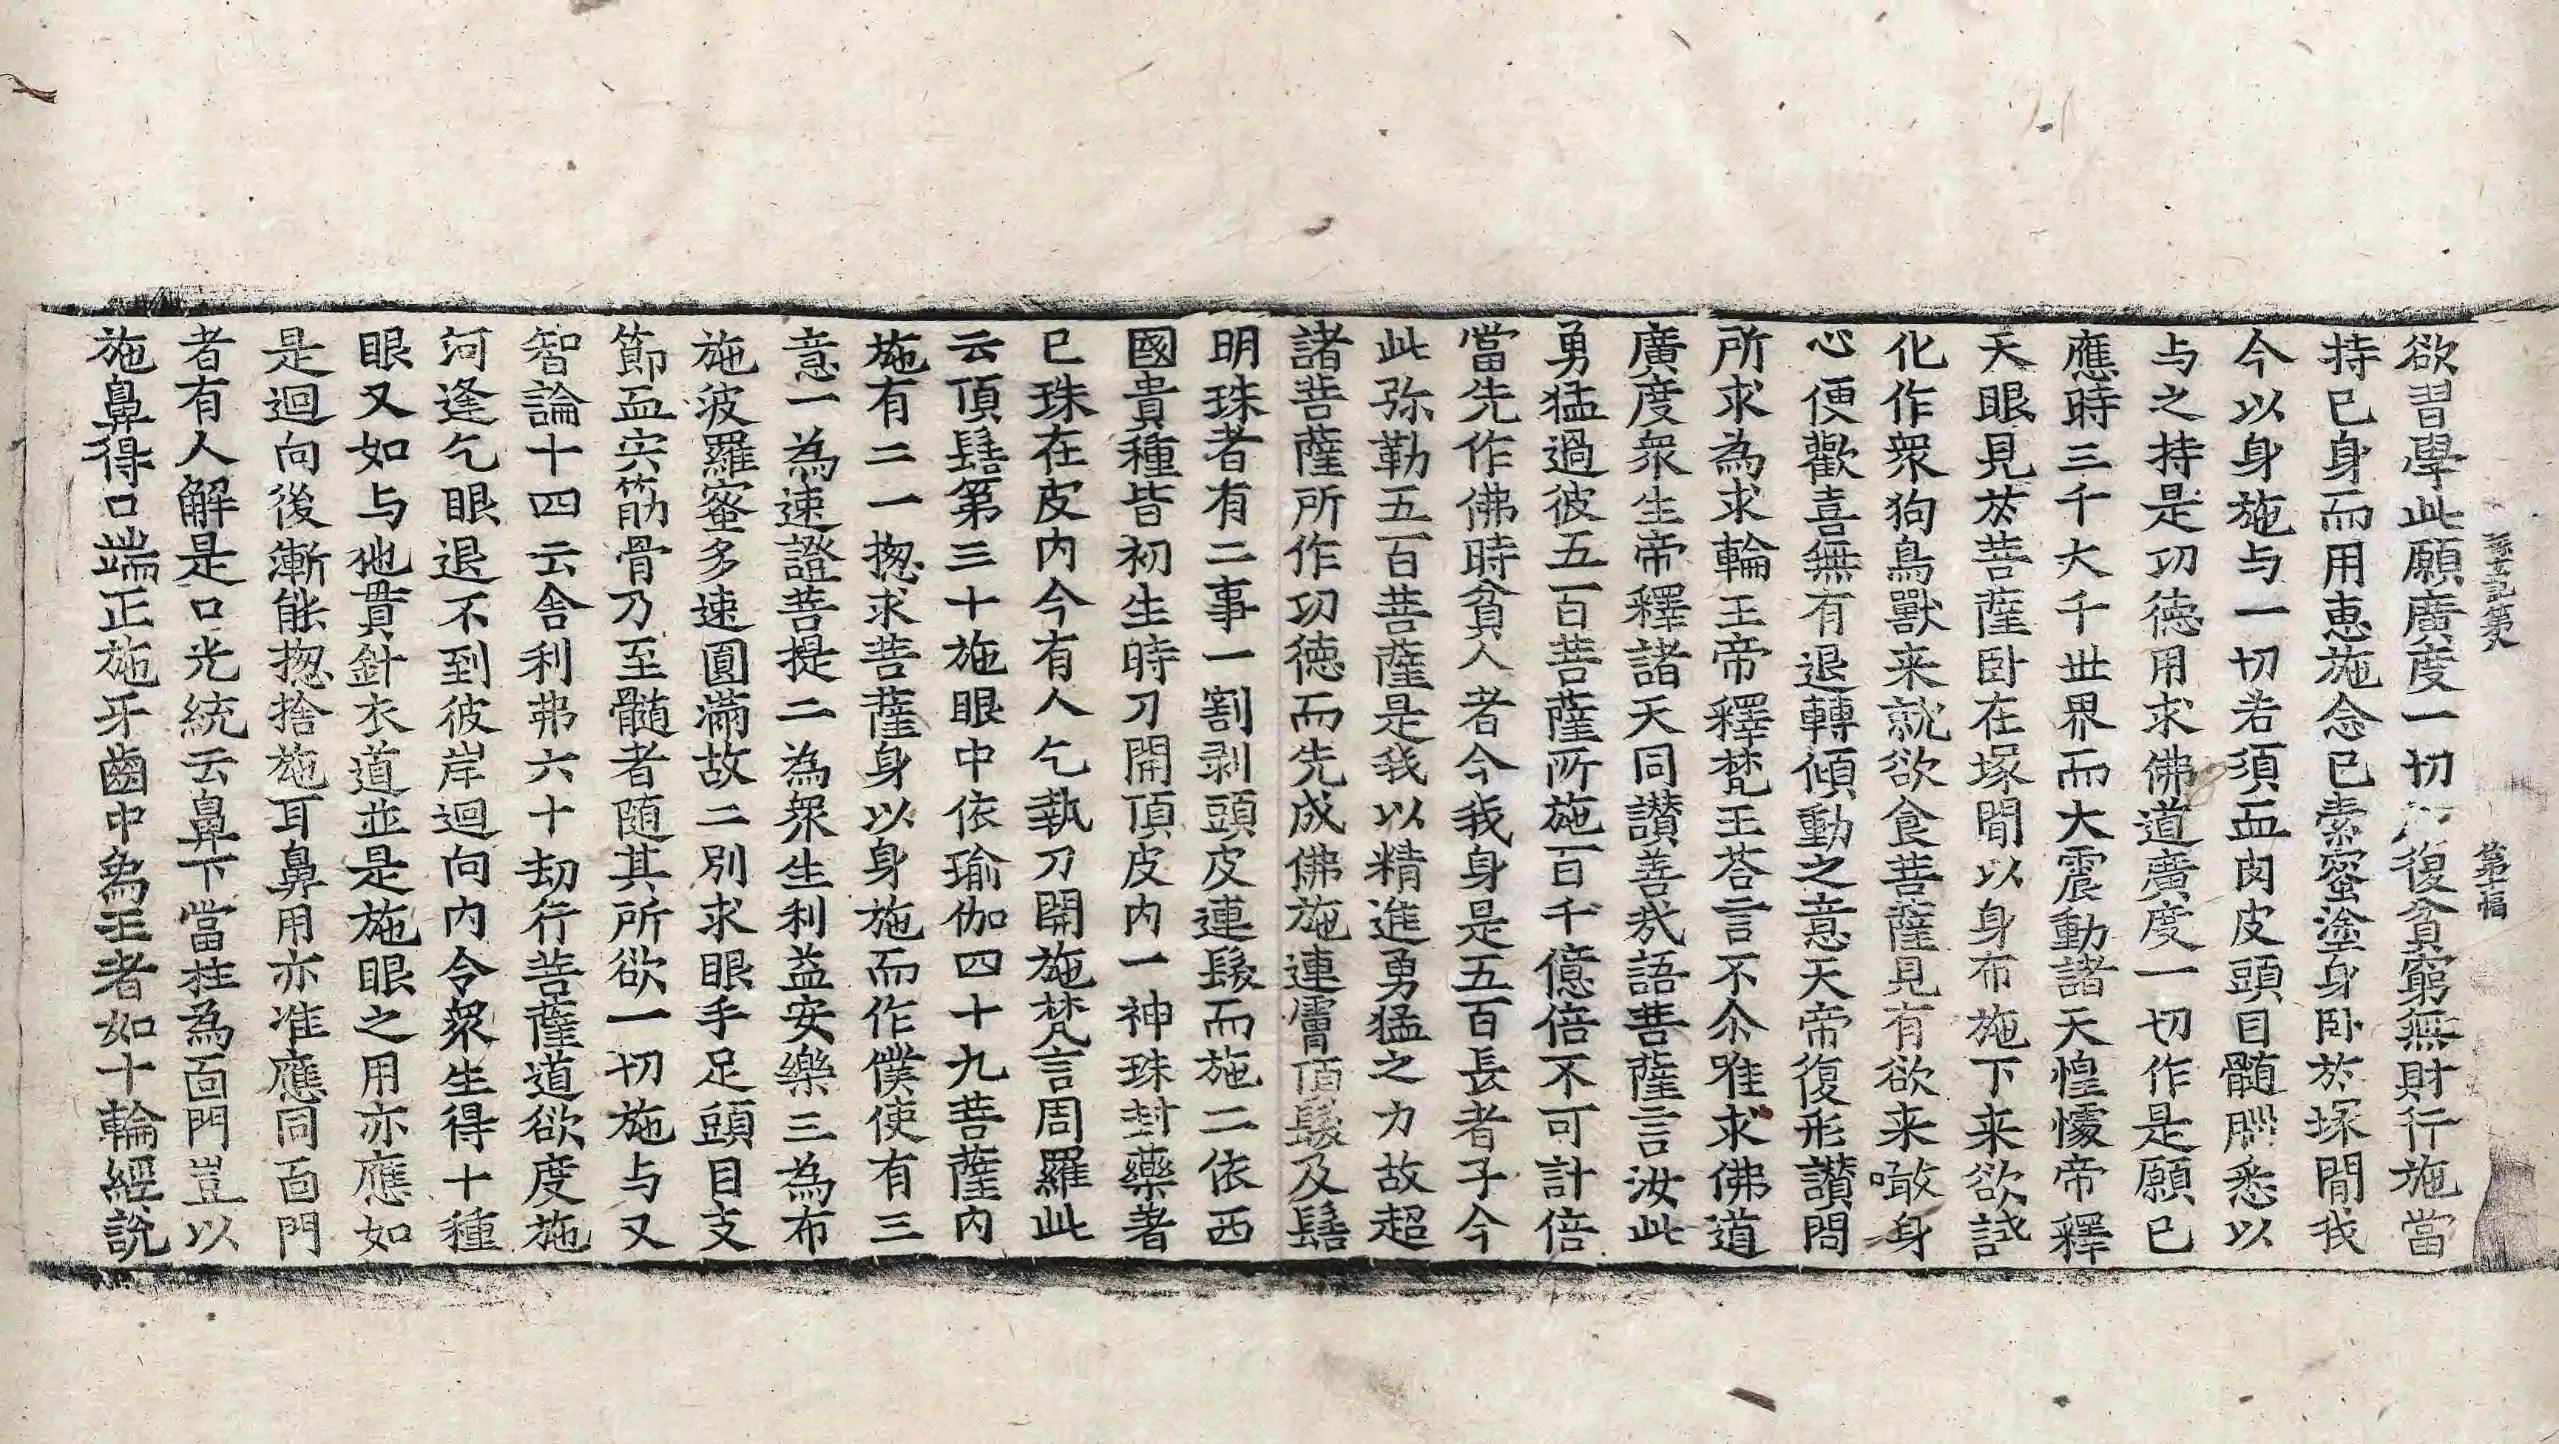 欲習學此願廣度一切復貧窮無財行施當
持己身而用惠施念已索蜜塗身卧於塚閒我
今以身施与一切若須血肉皮頭目髓腦悉以
与之持是功德用求佛道廣度一切作是願已
應時三千大千世界而大震動諸天惶懅帝釋
天眼見於菩薩卧在塚閒以身布施下来欲試
化作衆狗鳥獸来就欲食菩薩見有欲来噉身
心便歡喜無有退轉傾動之意天帝復形讃問
所求為求輪王帝釋梵王荅言不尒唯求佛道
廣度衆生帝釋諸天同讃善㢤語菩薩言汝此
勇猛過彼五百菩薩所施百千億倍不可計倍
當先作佛時貧人者今我身是五百長者子今
此弥勒五百菩薩是我以精進勇猛之力故超
諸菩薩所作功德而先成佛施連膚頂髮及髻
明珠者有二事一割剥頭皮連髮而施二依西
國貴種皆初生時刀開頂皮内一神珠封藥著
已珠在皮内今有人乞執刀開施梵言周羅此
云頂髻第三十施眼中依瑜伽四十九菩薩内
施有二一揔求菩薩身以身施而作僕使有三
意一為速證菩提二為衆生利益安樂三為布
施波羅蜜多速圓滿故二別求眼手足頭目支
節血宍筋骨乃至髓者随其所欲一切施与又
智論十四云舍利弗六十劫行菩薩道欲度施
河逢乞眼退不到彼岸迴向内令衆生得十種
眼又如与他貫針衣道並是施眼之用亦應如
是迴向後漸能揔捨施耳鼻用亦准應同面門
者有人解是口光統云鼻下當拄為面門豈以
施鼻得口端正施牙齒中為王者如十輪經說